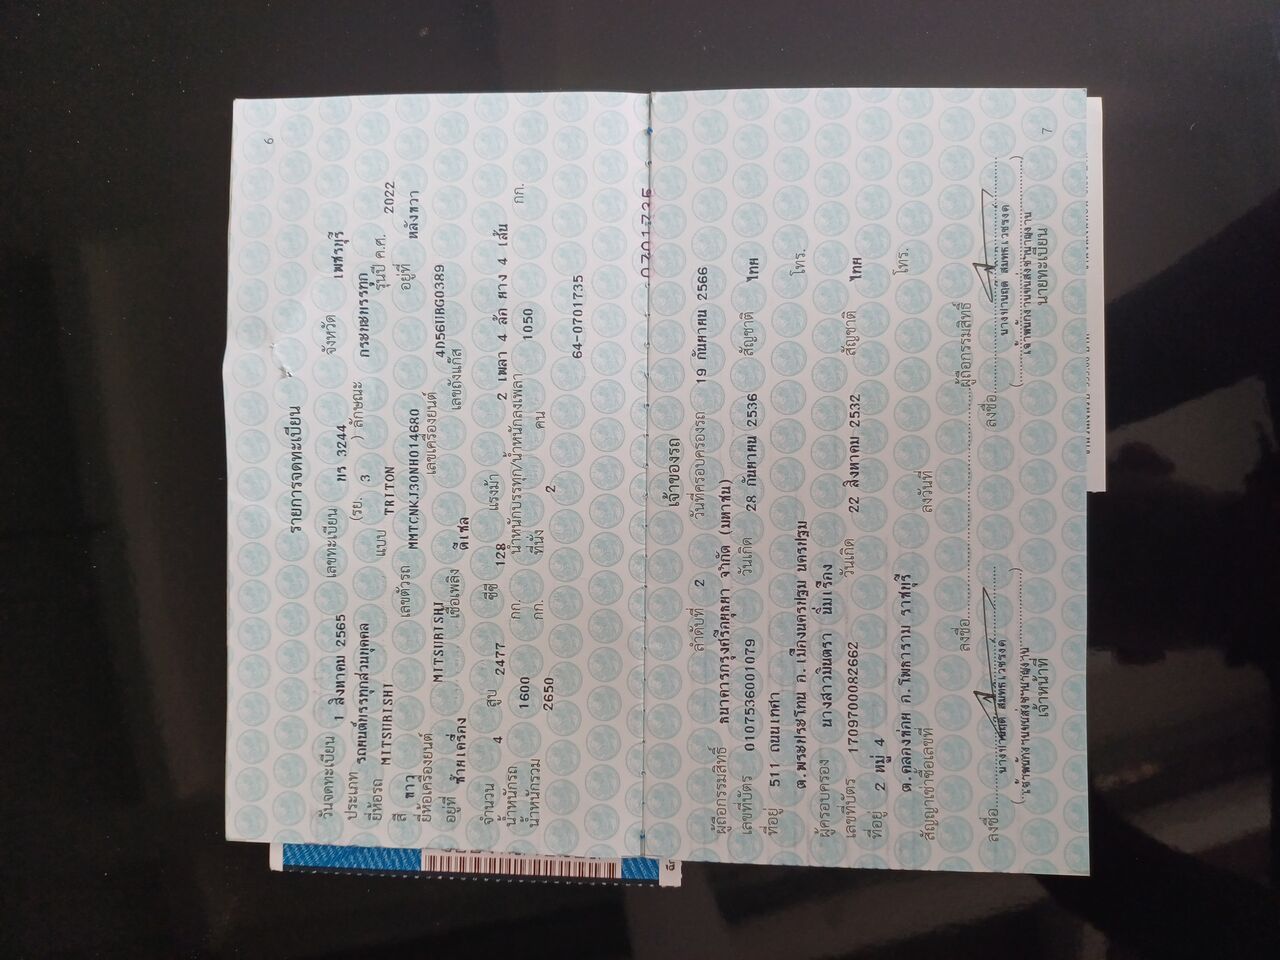 6
รายการจดทะเบียน
วันจดทะเบียน 1 สิงหาคม 2565 เลขทะเบียน 3244 จังหวัด เพชรบุรี
ประเภท รถยนต์บรรทุกส่วนบุคคล (รย. 3 ) ลักษณะ กระบะบรรทุก
ยี่ห้อรถ MITSUBISHI แบบ TRITON รุ่นปี ค.ศ. 2022
สี ขาว เลขตัวรถ MMTCNKJ30NH014680 อยู่ที่ หลังขวา
ยี่ห้อเครื่องยนต์ MITSUBISHI เลขเครื่องยนต์ 4D56UBG0389
อยู่ที่ ซ้ายเครื่อง เชื้อเพลิง ดีเซล เลขถังแก๊ส
จำนวน 4 สูบ 2477 ซีซี 128 แรงม้า 2 เพลา 4 ล้อ ยาง 4 เส้น
น้ำหนักรถ 1600 กก. น้ำหนักบรรทุก/น้ำหนักลงเพลา 1050 กก.
น้ำหนักรวม 2650 กก. ที่นั่ง 2 คน
64-0701735
เจ้าของรถ
ลำดับที่ 2 วันที่ครอบครองรถ 19 กันยายน 2566
ผู้ถือกรรมสิทธิ์ ธนาคารกรุงศรีอยุธยา จำกัด (มหาชน)
เลขที่บัตร 0107536001079 วันเกิด 28 กันยายน 2536 สัญชาติ ไทย
ที่อยู่ 511 ถนนเทศา โทร.
ต.พระประโทน อ.เมืองนครปฐม นครปฐม
ผู้ครอบครอง นางสาวมินตรา นิ่มเรือง
เลขที่บัตร 1709700082662 วันเกิด 22 สิงหาคม 2532 สัญชาติ ไทย
ที่อยู่ 2 หมู่ 4 โทร.
ต.คลองข่อย อ.โพธาราม ราชบุรี
สัญญาเช่าซื้อเลขที่ ลงวันที่
ลงชื่อ ผู้ถือกรรมสิทธิ์
ลงชื่อ ลงชื่อ
เจ้าหน้าที่ นายทะเบียน
7